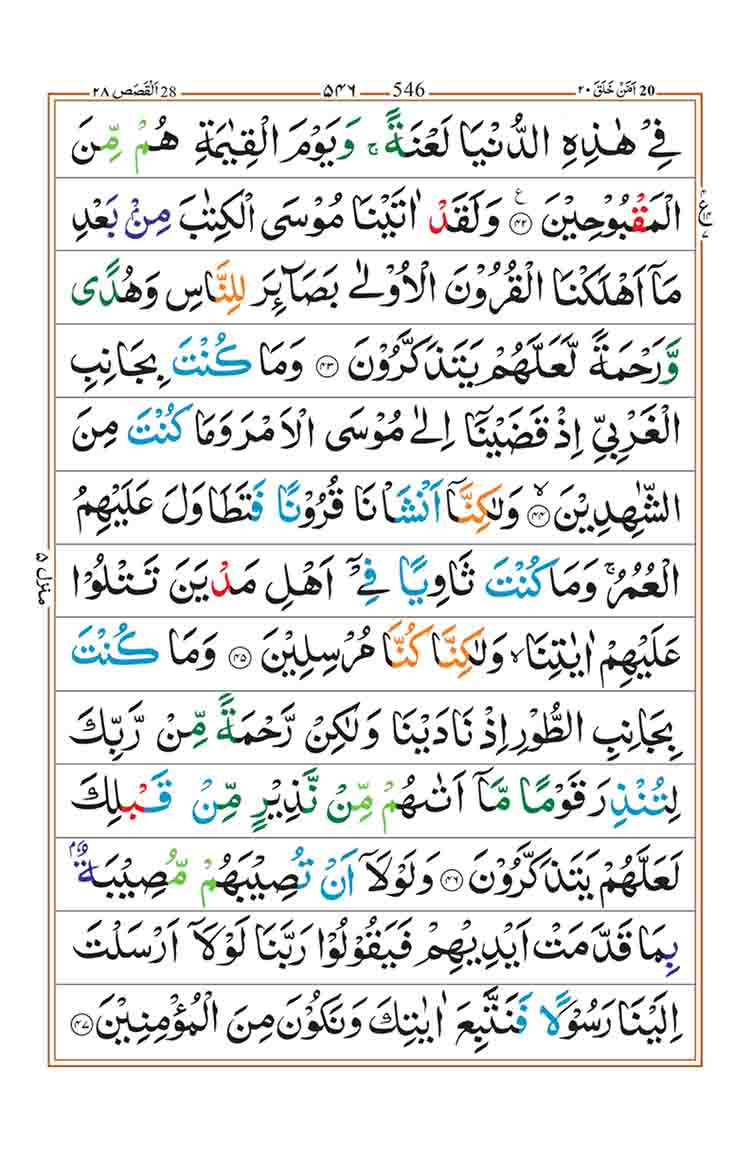 20 اَمَّنْ خَلَقَ ٢٠ 546 ۵۴۶ 28 اَلْقَصَص ٢٨
فِیْ هٰذِهِ الدُّنْیَا لَعْنَةًۚ وَیَوْمَ الْقِیٰمَةِ هُمْ مِّنَ
الْمَقْبُوْحِیْنَ ﴿۴۲﴾ ع وَلَقَدْ اٰتَیْنَا مُوْسَی الْكِتٰبَ مِنْۢ بَعْدِ
مَاۤ اَهْلَكْنَا الْقُرُوْنَ الْاُوْلٰی بَصَآىِٕرَ لِلنَّاسِ وَهُدًی
وَّرَحْمَةً لَّعَلَّهُمْ یَتَذَكَّرُوْنَ ﴿۴۳﴾ وَمَا كُنْتَ بِجَانِبِ
الْغَرْبِیِّ اِذْ قَضَیْنَاۤ اِلٰی مُوْسَی الْاَمْرَ وَمَا كُنْتَ مِنَ
الشّٰهِدِیْنَ ﴿۴۴﴾ۙ وَلٰكِنَّاۤ اَنْشَاْنَا قُرُوْنًا فَتَطَاوَلَ عَلَیْهِمُ
الْعُمُرُۚ وَمَا كُنْتَ ثَاوِیًا فِیْۤ اَهْلِ مَدْیَنَ تَتْلُوْا
عَلَیْهِمْ اٰیٰتِنَاۙ وَلٰكِنَّا كُنَّا مُرْسِلِیْنَ ﴿۴۵﴾ وَمَا كُنْتَ
بِجَانِبِ الطُّوْرِ اِذْ نَادَیْنَا وَلٰكِنْ رَّحْمَةً مِّنْ رَّبِّكَ
لِتُنْذِرَ قَوْمًا مَّاۤ اَتٰىهُمْ مِّنْ نَّذِیْرٍ مِّنْ قَبْلِكَ
لَعَلَّهُمْ یَتَذَكَّرُوْنَ ﴿۴۶﴾ وَلَوْلَاۤ اَنْ تُصِیْبَهُمْ مُّصِیْبَةٌۢ
بِمَا قَدَّمَتْ اَیْدِیْهِمْ فَیَقُوْلُوْا رَبَّنَا لَوْلَاۤ اَرْسَلْتَ
اِلَیْنَا رَسُوْلًا فَنَتَّبِعَ اٰیٰتِكَ وَنَكُوْنَ مِنَ الْمُؤْمِنِیْنَ ﴿۴۷﴾
منزل ۵